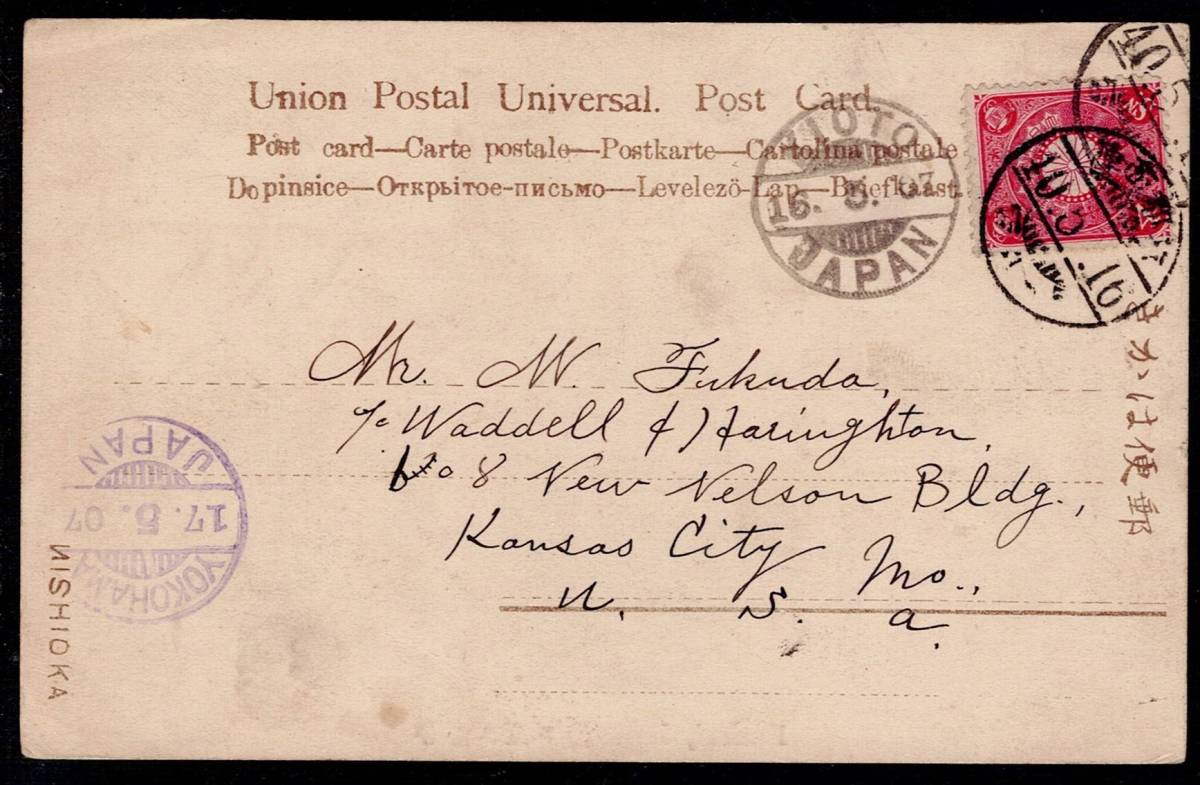 Union Postal Universal. Post Card.
Post card—Carte postale—Postkarte—Cartolina postale
Dopinsice—Открьітое-письмо—Levelezö-Lap—Briefkaast.
KIOTO
16. 5. 07
JAPAN
40
40.5.16
きかは便郵
Mr. W. Fukuda,
c/o Waddell & Haringhton,
608 New Nelson Bldg.,
Kansas City Mo.,
U. S. A.
YOKOHAMA
17. 5. 07
JAPAN
NISHIOKA